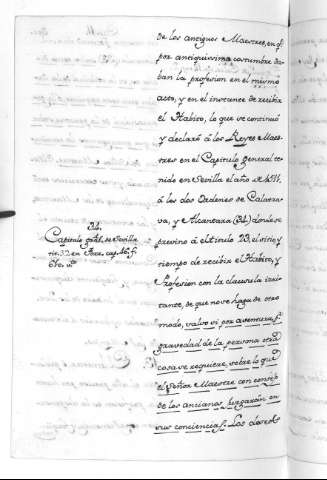 de los antiguos Maestres, en q.e
por antiquissima costumbre da-
ban la profesion en el mismo
acto, y en el instance de recibir
el Habito, lo que se continuó
y declaró á los Reyes Maes-
tres en el Capitulo general te-
nido en Sevilla el año de
á los dos Ordenes de Calatra-
va, y Alcantara (34) donde se
previno á el titulo 23, el sitio, y
tiempo de recibir el Habito, y
34.
Capitulo gral. de Sevilla
tit. 32 en
Profesion con la clausula irri-
tante, de que no se haga de otro
modo, salvo si por aventura, p.r
gravedad de la persona otra
cosa se requiere, sobre lo que
el Señor Maestre con consejo
de los ancianos juzgarán en
sus conciencias. Los doctos